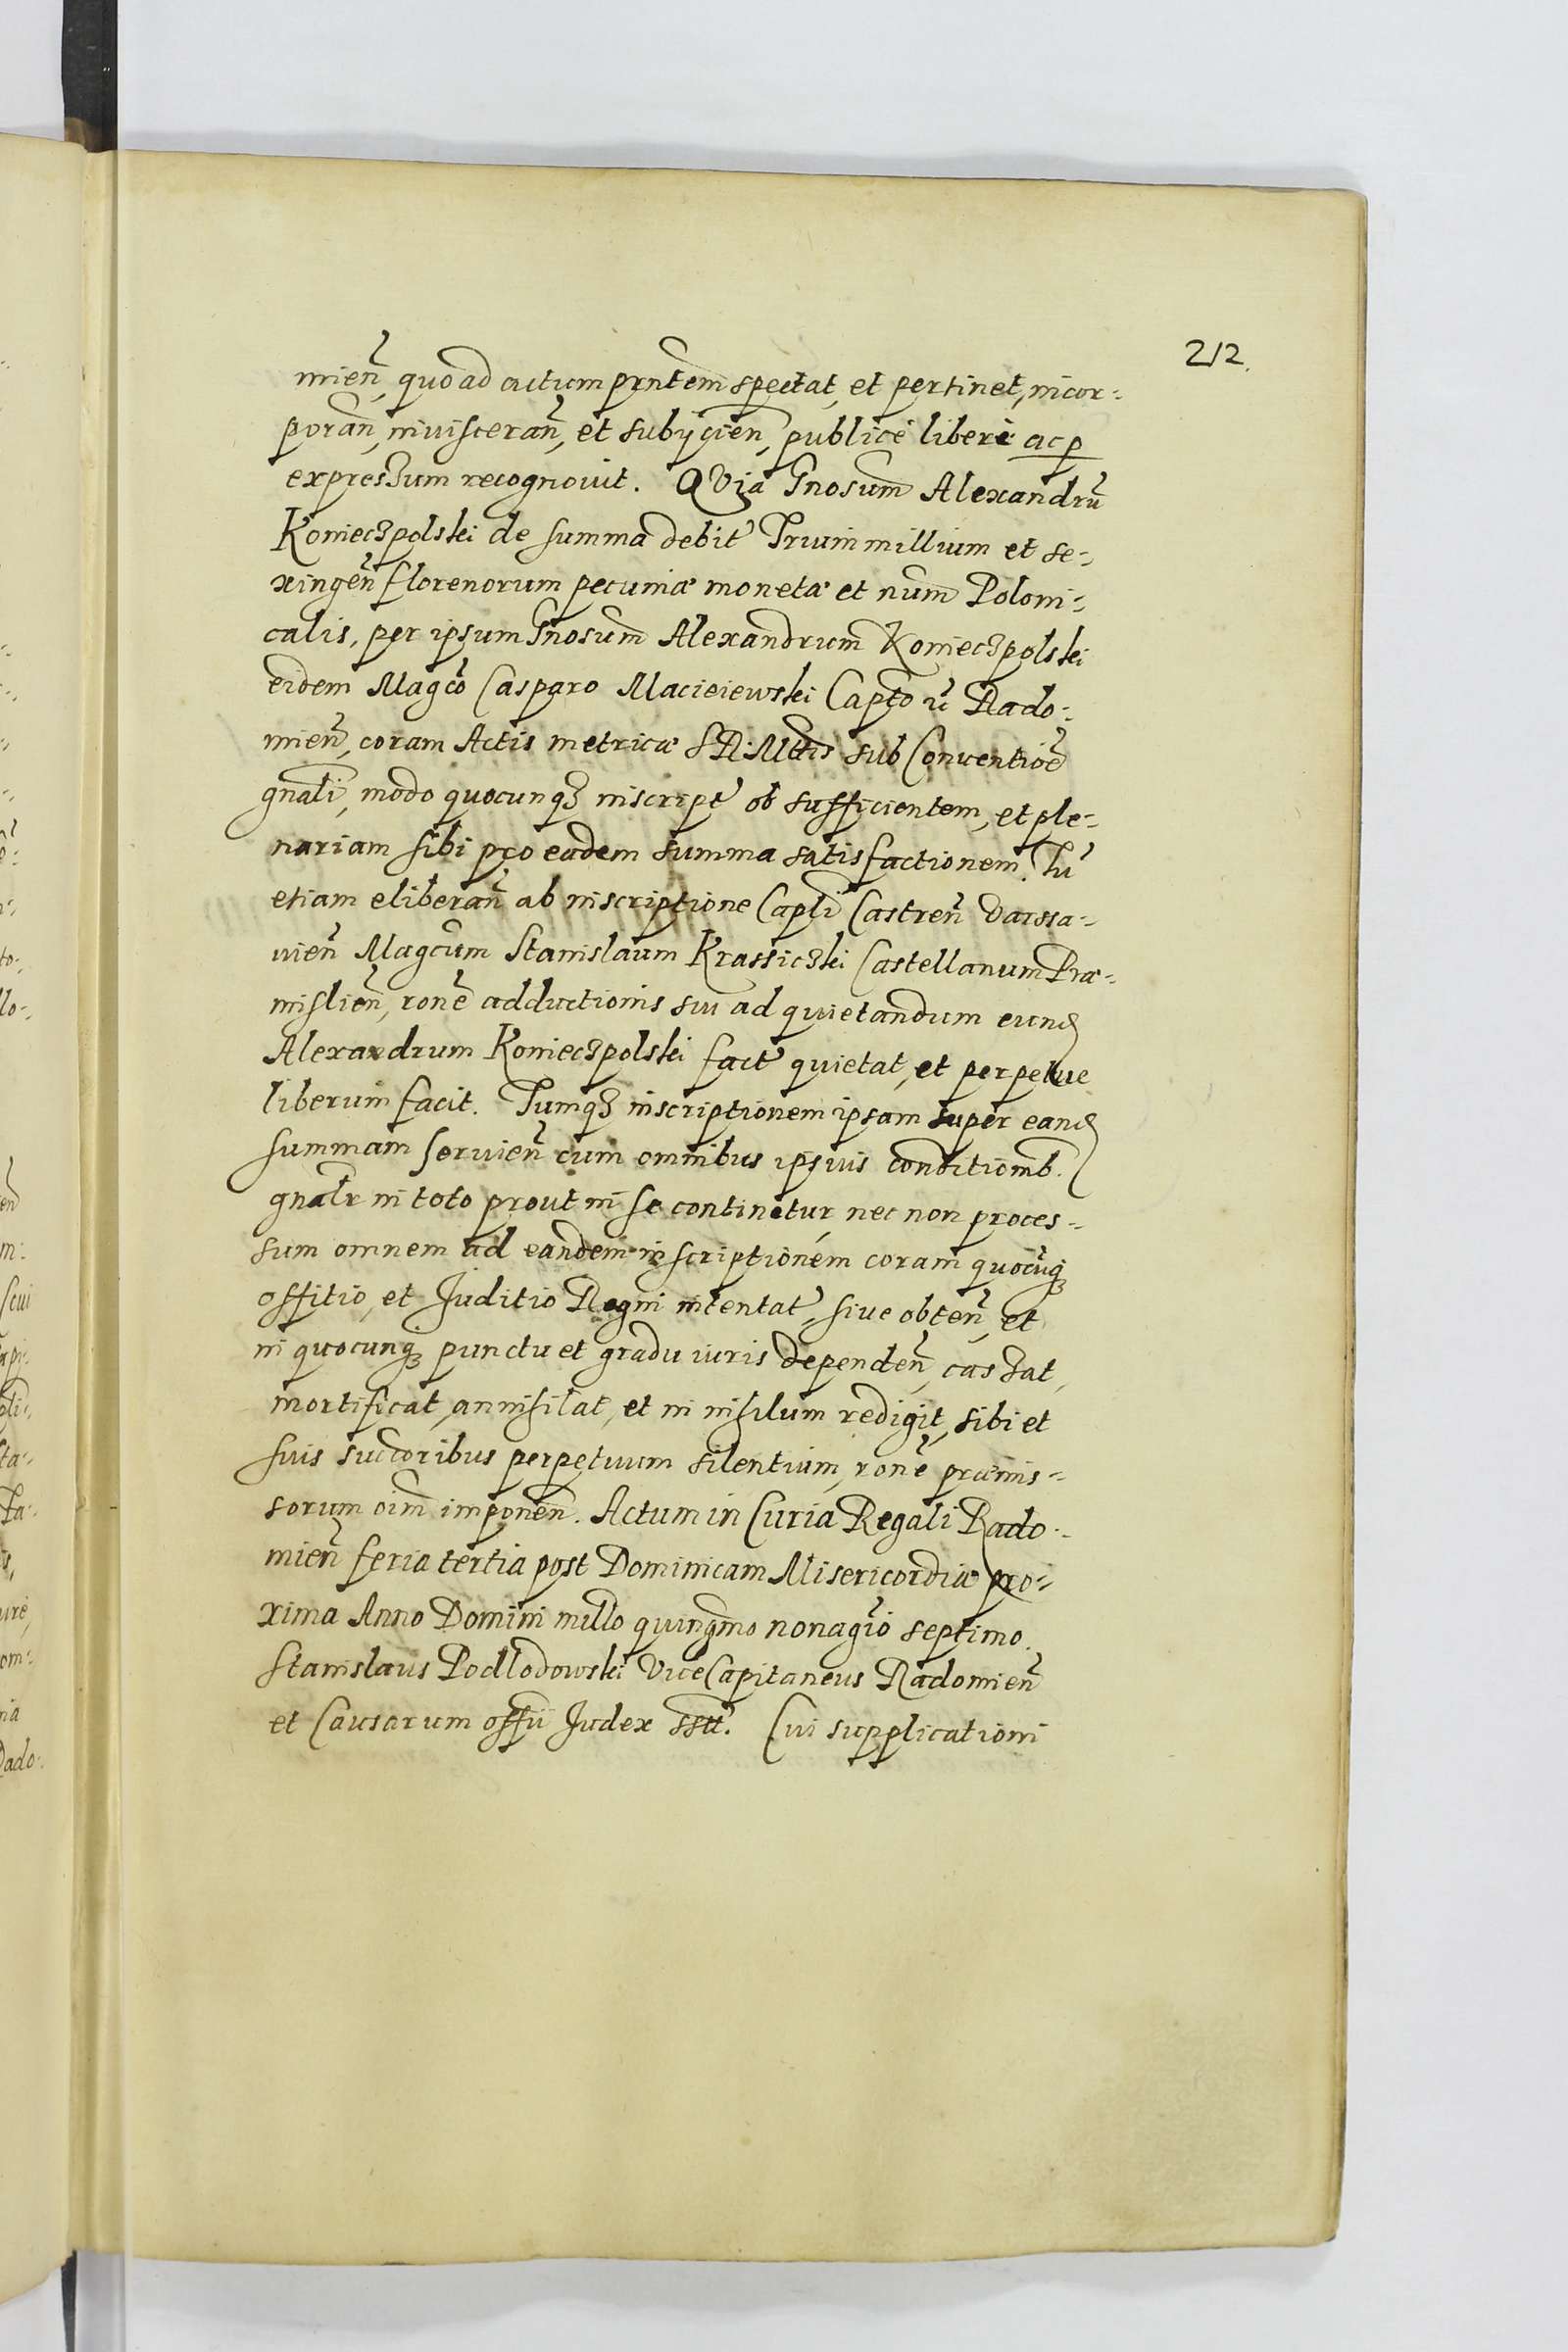 212.
mien̄, quo ad actum prn̄tem spectat, et pertinet, incor-
poran̄, inuisceran̄, et subijcien̄, publicè liberè ac p
expressum recognouit. QVia Gnosum Alexandrū
Konieczpolski de summa debit Trium millium et se-
xingen̄ florenorum pecuniæ monetæ et num̄ Poloni-
calis, per ipsum Gnosum Alexandrum Konieczpolski
eidem Magco Casparo Macieiewski Capto ū Rado-
mien̄, coram Actis metricæ S R: Mttis sub Conuentiōe
gnali, modo quocunqz inscript ob sufficientem, et ple-
nariam sibi pro eadem summa satisfactionem. Tū
etiam eliberan̄ ab inscriptione Capli Castren̄ Varssa-
uien̄ Magcum Stanislaum Krassiczki Castellanum Præ-
mislien̄, rōne adductionis sui ad quietandum eund
Alexandrum Konieczpolski fact quietat, et perpetue
liberum facit. Tumqz inscriptionem ipsam super eand
summam seruien̄ cum omnibus ipsius conditionib.
gnalr in toto prout in se continetur, nec non proces-
sum omnem ad eandem inscriptionem coram quocūqz
offitio, et Juditio Regni intentat, siue obten̄, et
in quocunqz punctu et gradu iuris dependen̄, cassat,
mortificat, annihilat, et in nihilum redigit, sibi et
suis succoribus perpetuum silentium, rōne præmis-
sorum oim̄ imponen̄. Actum in Curia Regali Rado-
mien̄ feria tertia post Dominicam Misericordiæ pro-
xima Anno Domini millo quingmo nonagio septimo.
Stanislaus Podlodowski ViceCapitaneus Radomien̄
et Causarum offii Judex sstt. Cui supplicationi